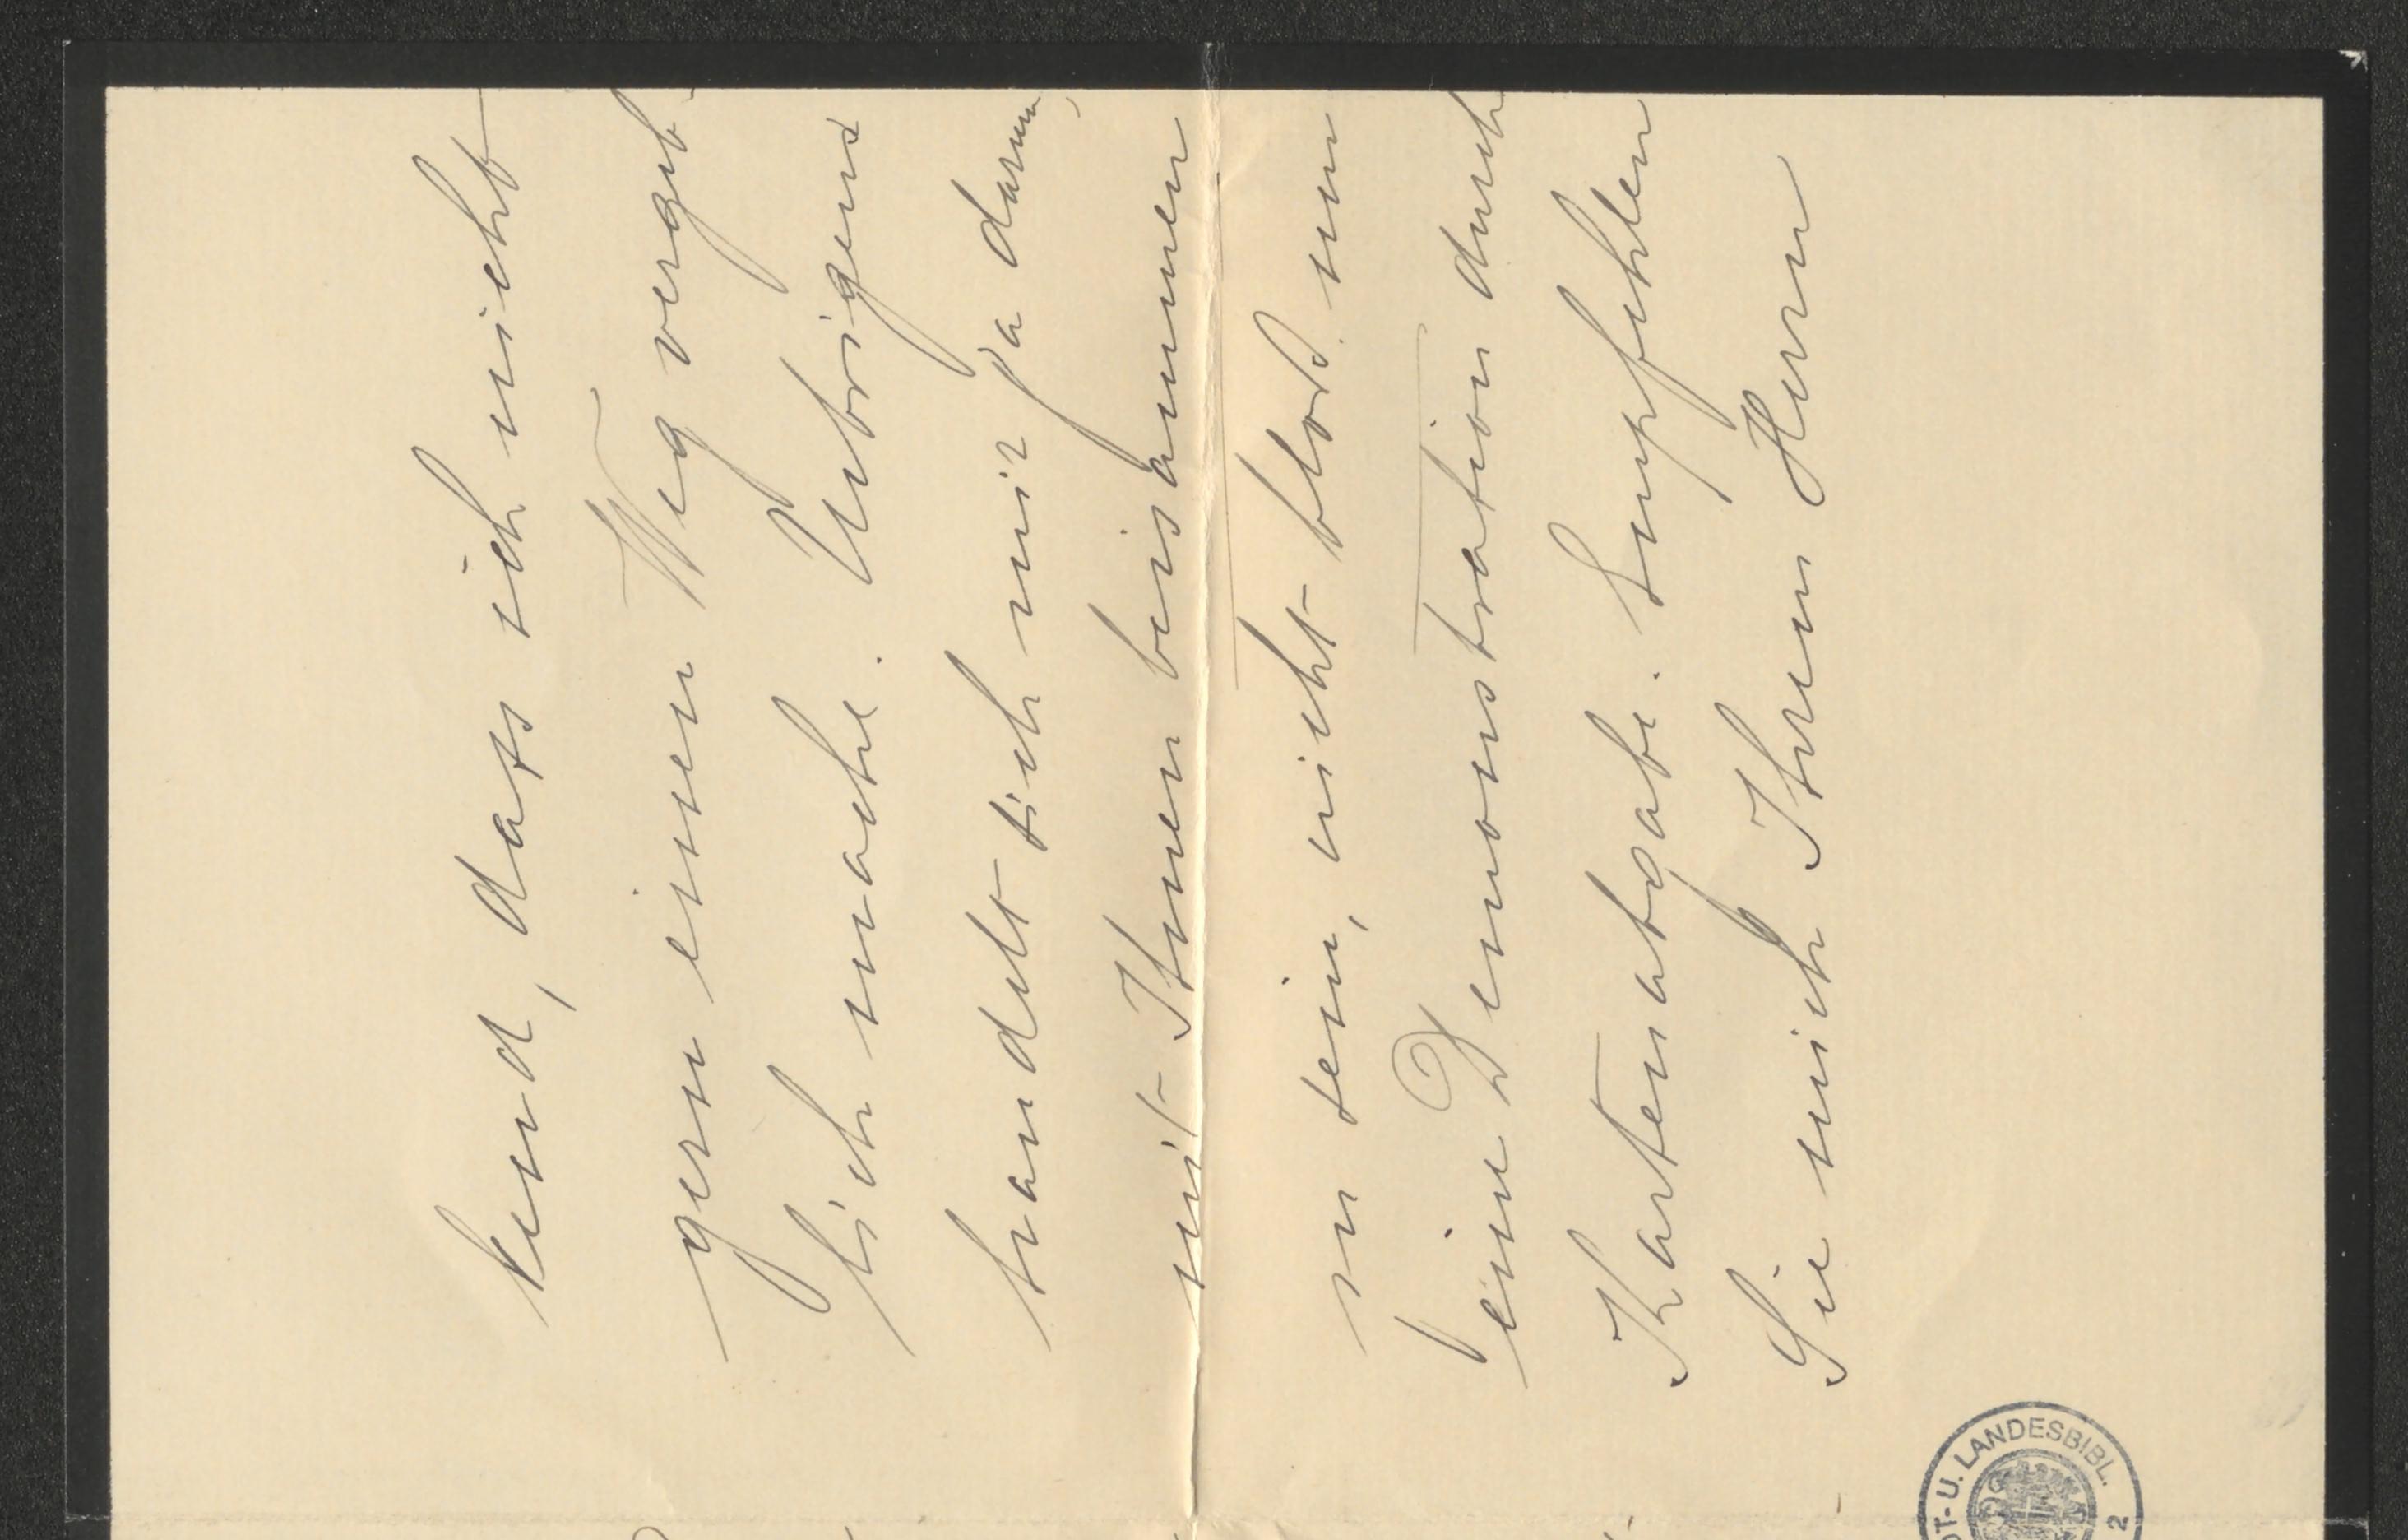 kend, dass ich nicht
gern einen Weg vergeb-
lich mache. Uebrigens
handelt sich mir ja darum,
mit Ihnen beisammen
zu sein, nicht bloss um
eine Demonstration durch
Kartenabgabe. Empfehlen
Sie mich Ihrem Herrn
DT- U. LANDESBIBL.
2